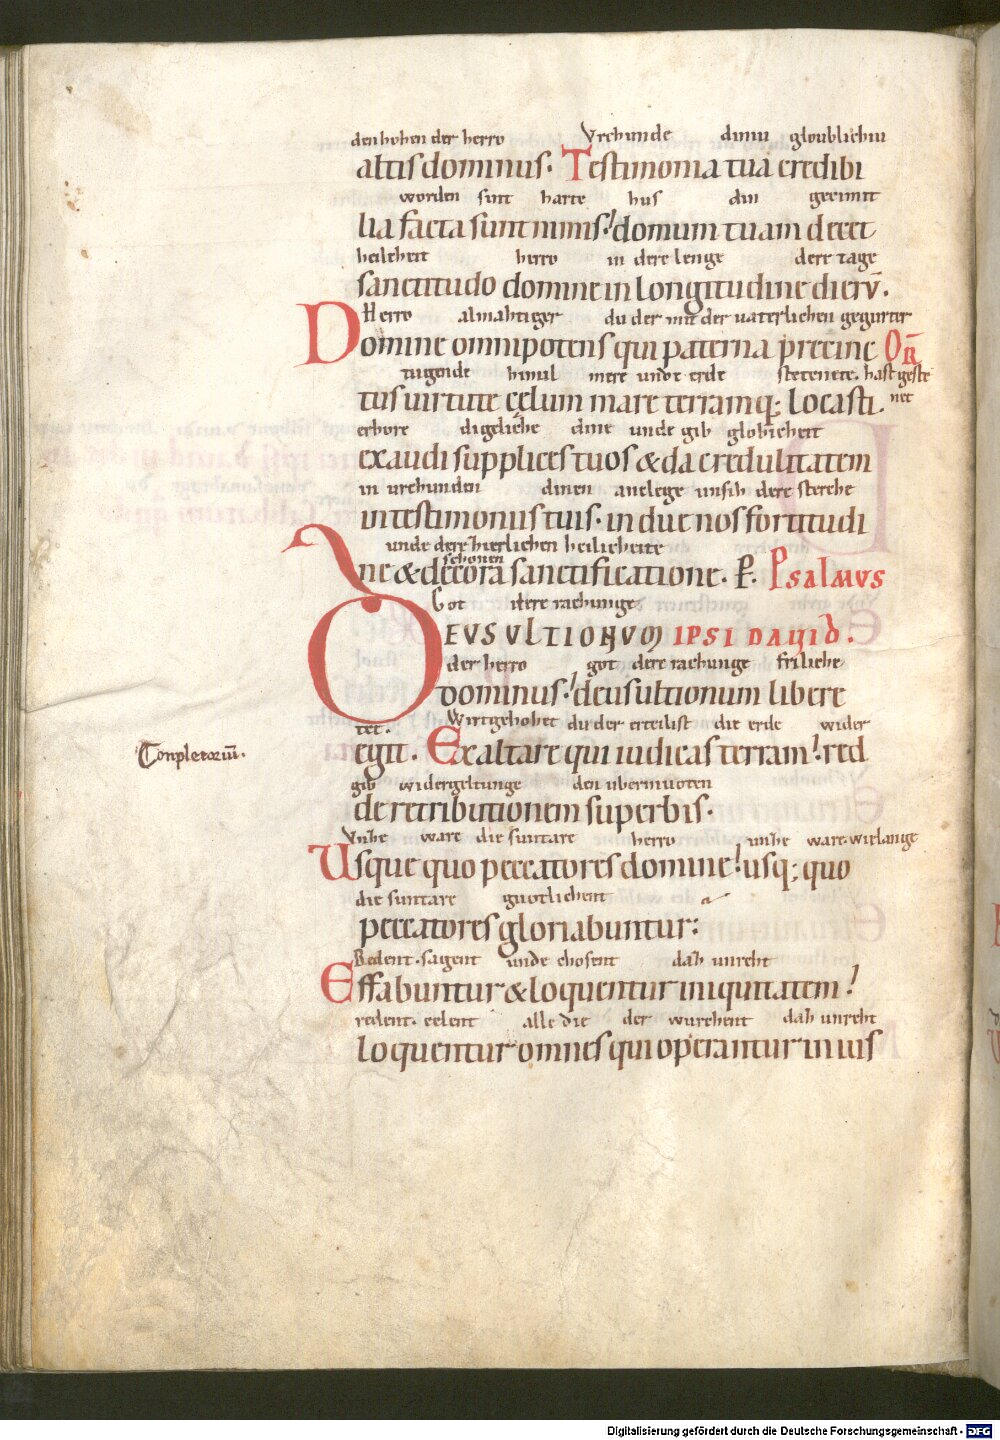 den hohen der herro Vrchunde diniu gloublichiu
altis dominus. Testimonia tua credibi
worden sint harte hus din gecimit
lia facta sunt nimis! domum tuam decet
heilcheit herro in dere lenge dere tage
sanctitudo domine in longitudine dierū.
Herro almahtiger du der mit der uaterlichen gegurter
Domine omnipotens qui paterna precinc OR̄
tugende himil mere unde erde stetenete. hast geste
tus uirtute cęlum mare terramq; locasti. net
erhore digeliche dine unde gib globicheit
exaudi supplices tuos & da credulitatem
in urchunden dinen anelege unsih dere sterche
in testimoniis tuis. in due nos fortitudi
unde dere hierlichen heilicheite
schonen
ne & decora sanctificatione. P. Psalmus
Got itere rachunge
DEUS ULTIONUM IPSI DAVID.
der herro got dere rachunge friliche
dominus! deus ultionum libere
tet. Wirt gehohet du der erteilist die erde wider
egit. Exaltare qui iudicas terram! red
Conpletoriū.
gib widergeltunge den ubermuoten
de retributionem superbis.
Vnhe ware die suntare herro unhe ware. wielange
Usque quo peccatores domine! usq; quo
die suntare guotlichent
peccatores gloriabuntur:
Redent. sagent unde chosent dah unreht
Effabuntur & loquentur iniquitatem!
redent. celent alle die der wurchent dah unreht
loquentur omnes qui operantur in ius
Digitalisierung gefördert durch die Deutsche Forschungsgemeinschaft - DFG